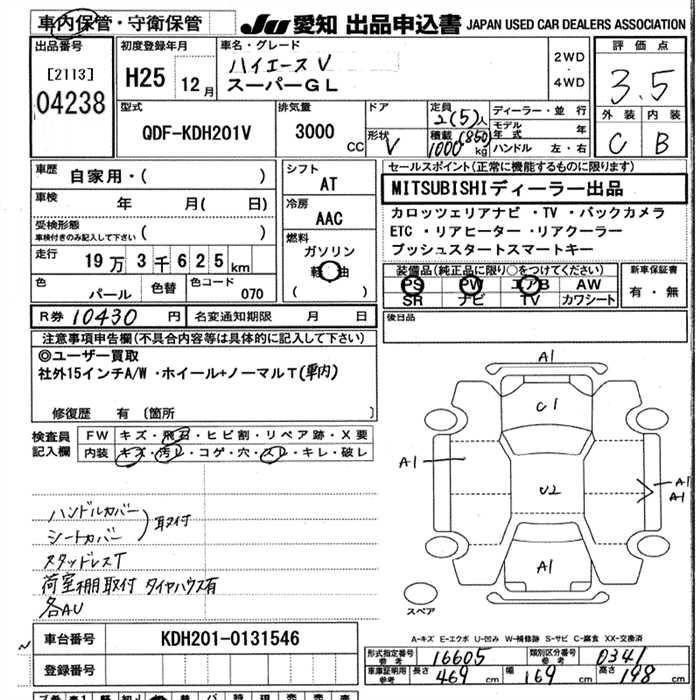 車内保管・守衛保管
JU 愛知 出品申込書 JAPAN USED CAR DEALERS ASSOCIATION
出品番号
[2113]
04238
初度登録年月
H25 12月
車名・グレード
ハイエース V
スーパーGL
2WD
・
4WD
評価点
3.5
外装 内装
C B
型式
QDF-KDH201V
排気量
3000 CC
ドア
形状 V
定員 2(5)人
積載 (850)
1000 kg
ディーラー・並行
モデル年式 年
ハンドル 左・右
車歴
自家用・( )
車検 年 月( 日)
受検形態
車検付きのみ記入して下さい ( )
走行 19万3千625km
色 パール 色替 色コード 070
シフト
AT
冷房
AAC
燃料
ガソリン
軽油
( )
セールスポイント(正常に機能するものに限ります)
MITSUBISHIディーラー出品
カロッツェリアナビ・TV・バックカメラ
ETC・リアヒーター・リアクーラー
プッシュスタートスマートキー
装備品(純正品に限り○をつけてください)
PS PW エアB AW
SR ナビ TV カワシート
新車保証書
有・無
R券 10430円 名変通知期限 月 日
後日品
注意事項申告欄(不具合内容等は具体的に記入して下さい)
◎ユーザー買取
社外15インチA/W・ホイール+ノーマルT(車内)
修復歴 有 〔箇所 〕
検査員
記入欄
FW キズ・飛石・ヒビ割・リペア跡・X要
内装 キズ・汚レ・コゲ・穴・スレ・キレ・破レ
ハンドルカバー
シートカバー )取付
スタッドレスT
荷室棚取付 タイヤハウス有
各AU
A1
C1
A1
U2
A1
A1
A1
スペア
A-キズ E-エクボ U-凹み W-補修跡 S-サビ C-腐食 XX-交換済
車台番号 KDH201-0131546
登録番号
形式指定番号 参考 16605 類別区分番号 参考 0341
車庫証明用 参考 長さ 469 cm 幅 169 cm 高さ 198 cm